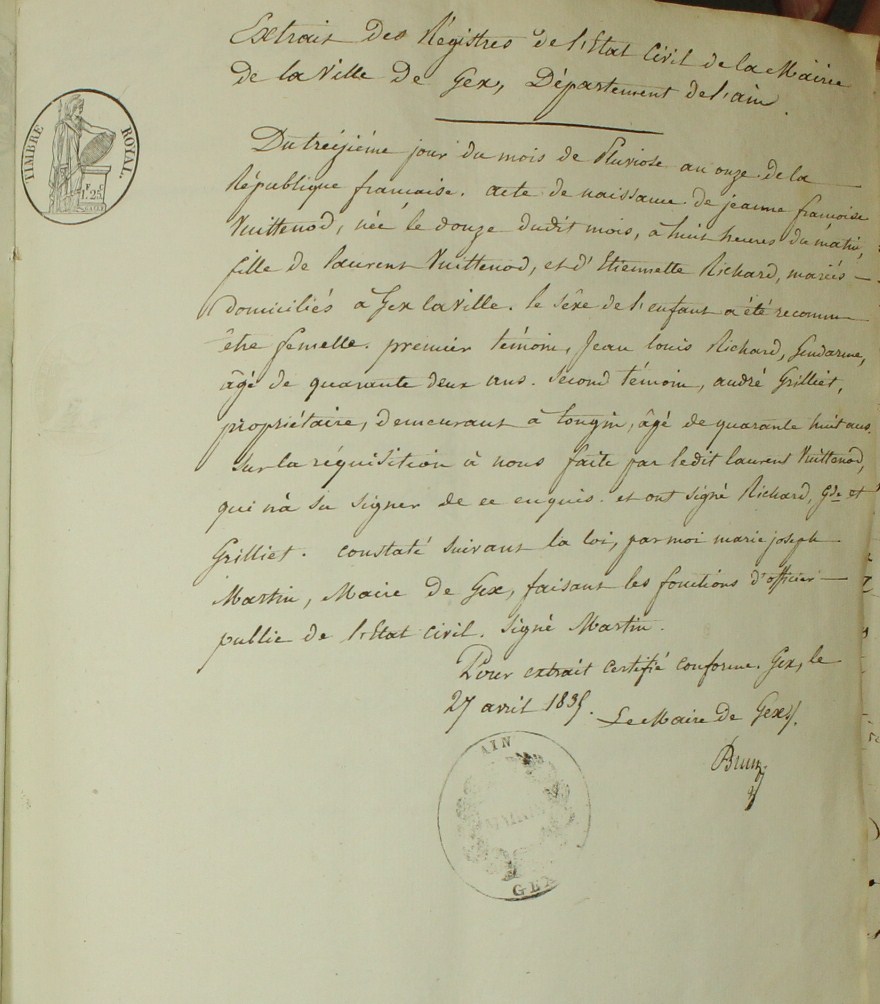 Extrait des Régistres de l'Etat Civil de la Mairie
de la Ville de Gex, Département de l'ain.
TIMBRE ROYAL.
1.F 25.C
Du treizième jour du mois de Pluviose an onze de la
République francaise. acte de naissance de jeanne francoise
Vuittenod, née le douze dudit mois, à huit heures du matin,
fille de laurent Vuittenod, et d'Etiennette Richard, mariés
domiciliés à Gex la Ville. le sexe de l'enfant a été reconnu
être femelle. premier témoin, Jean louis Richard, Gendarme,
âgé de quarante deux ans. Second témoin, andré Grilliet,
propriétaire, demeurant à tougin, âgé de quarante huit ans.
Sur la réquisition à nous faite par ledit laurent Vuittenod,
qui n'a su signer de ce enquis. et ont signé Richard, Gde. et
Grilliet. constaté suivant la loi, par moi marie joseph
Martin, Maire de Gex, faisant les fonctions d'officier
public de l'Etat Civil. Signé Martin.
Pour extrait certifié conforme. Gex, le
27 avril 1835.
Le Maire de Gex.
AIN
GEX